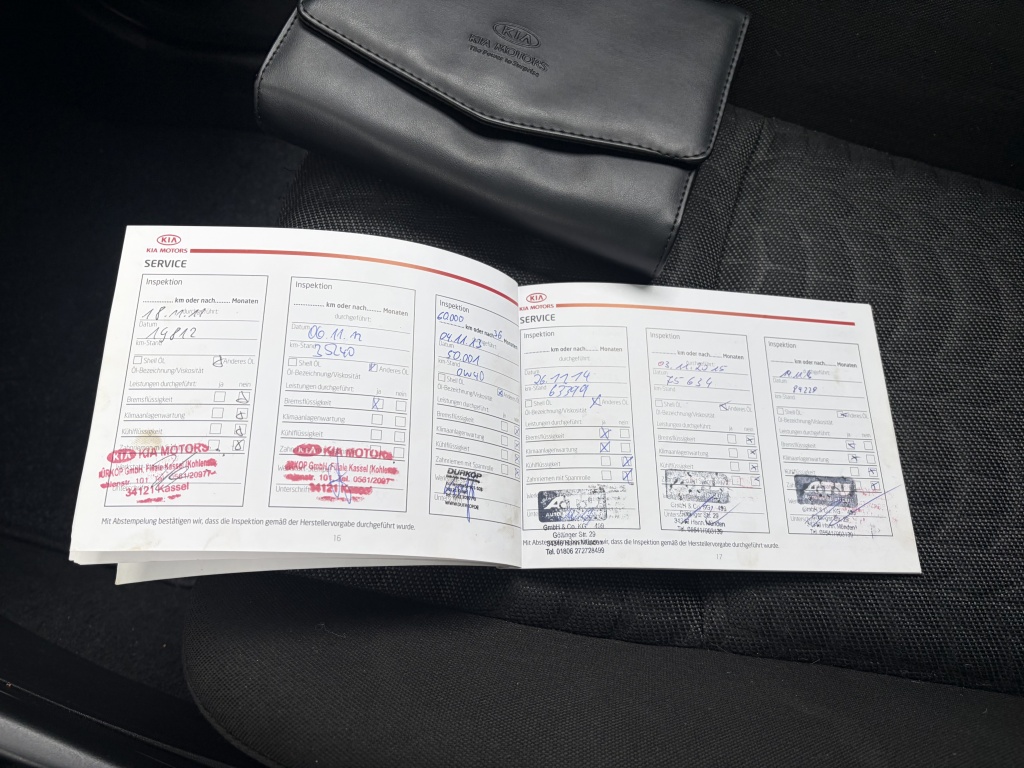 KIA
KIA MOTORS
The Power to Surprise
KIA
KIA MOTORS
SERVICE
Inspektion
km oder nach........ Monaten
durchgeführt:
18.11.11
Datum
19812
km-Stand
Shell ÖL
Anderes ÖL
Öl-Bezeichnung/Viskosität
Leistungen durchgeführt: ja nein
Bremsflüssigkeit
Klimaanlagenwartung
Kühlflüssigkeit
KIA MOTORS
34121 Kassel
Inspektion
km oder nach........ Monaten
durchgeführt:
Datum
06.11.12
km-Stand
35240
Shell ÖL
Anderes ÖL
Öl-Bezeichnung/Viskosität
Leistungen durchgeführt: ja nein
Bremsflüssigkeit
Klimaanlagenwartung
Kühlflüssigkeit
KIA MOTORS
34121 Kassel
Inspektion
60.000
km oder nach 36 Monaten
04.11.13
Datum
50.001
km-Stand
0W40
Shell ÖL
Öl-Bezeichnung/Viskosität
Leistungen durchgeführt:
Bremsflüssigkeit
Klimaanlagenwartung
Kühlflüssigkeit
Zahnriemen mit Spannrolle
DÜRKOP
WWW.DURKOP.DE
Mit Abstempelung bestätigen wir, dass die Inspektion gemäß der Herstellervorgabe durchgeführt wurde.
16
KIA
KIA MOTORS
SERVICE
Inspektion
km oder nach........ Monaten
durchgeführt:
Datum
26.11.14
km-Stand
63399
Shell ÖL
Anderes ÖL
Öl-Bezeichnung/Viskosität
Leistungen durchgeführt: ja nein
Bremsflüssigkeit
Klimaanlagenwartung
Kühlflüssigkeit
Zahnriemen mit Spannrolle
GmbH & Co. KG
Göttinger Str. 29
34346 Hann. Münden
Tel. 01806 272728499
Inspektion
km oder nach........ Monaten
durchgeführt:
Datum
03.11.2015
km-Stand
75634
Shell ÖL
Anderes ÖL
Öl-Bezeichnung/Viskosität
Leistungen durchgeführt: ja nein
Bremsflüssigkeit
Klimaanlagenwartung
Kühlflüssigkeit
Inspektion
km oder nach........ Monaten
durchgeführt:
Datum
km-Stand
Shell ÖL
Anderes ÖL
Öl-Bezeichnung/Viskosität
Leistungen durchgeführt: ja nein
Bremsflüssigkeit
Klimaanlagenwartung
Kühlflüssigkeit
ATU
Mit Abstempelung bestätigen wir, dass die Inspektion gemäß der Herstellervorgabe durchgeführt wurde.
17